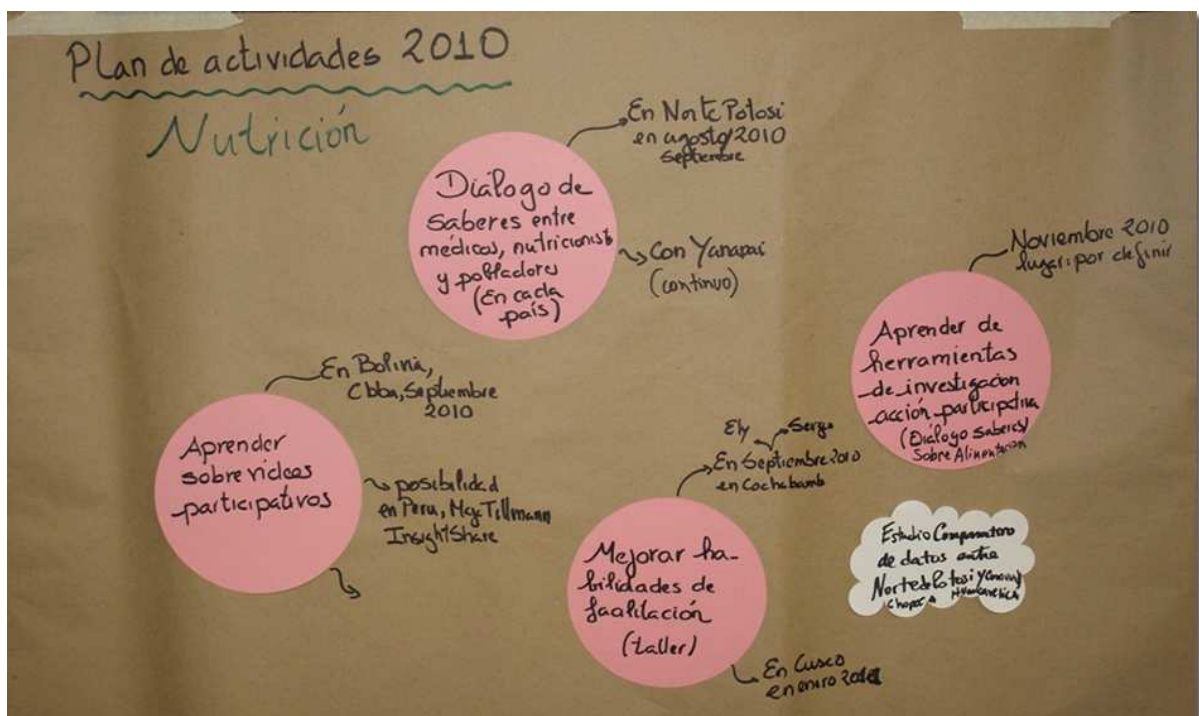 Plan de actividades 2010
Nutrición
En Norte Potosi
en agosto/2010
Septiembre
Diálogo de
saberes entre
médicos, nutricionist
y pobladores
(En cada
país)
Con Yanapai
(continuo)
Noviembre 2010
lugar: por definir
Aprender de
herramientas
de investigacion
acción participativa
(Diálogo saberes)
Sobre Alimentacion
En Bolivia,
Cbba, Septiembre
2010
Aprender
sobre videos
participativos
posibilidad
en Peru, Tillmann
InsightShare
Ely Sergo
En Septiembre 2010
en Cochabamb
Mejorar ha-
bilidades de
facilitación
(taller)
En Cusco
en enero
Estudio Comparativo
de datos entre
Norte de Potosi y
Chopcca Huancavelica